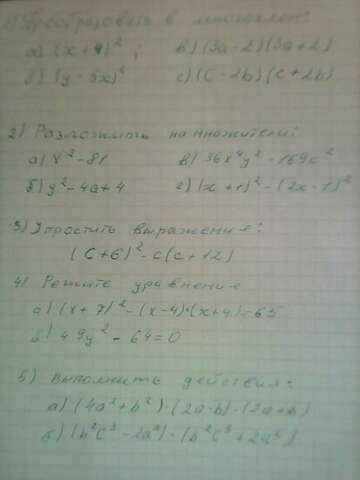 1) Преобразовать в многочлен:
а) (x + 4)² ; в) (3a - 2)(3a + 2)
б) (y - 5x)² с) (C - 2b)(C + 2b)
2) Разложить на множители:
а) x² - 81 в) 36x⁴y² - 169c²
б) y² - 4a + 4 г) (x + 1)² - (2x - 1)²
3) Упростить выражение:
(C + 6)² - c(c + 12)
4) Решите уравнение
а) (x + 7)² - (x - 4)·(x + 4) = 65
б) 49y² - 64 = 0
5) Выполнить действия:
а) (4a² + b²)·(2a - b)·(2a + b)
б) (b²c³ - 2a²)·(b²c³ + 2a²)